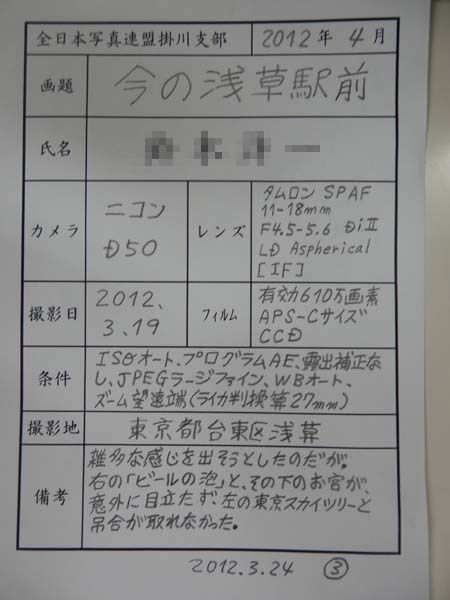 全日本写真連盟掛川支部 2012年 4月
画題 今の浅草駅前
氏名
カメラ ニコン D50
レンズ タムロン SPAF
11-18mm
F4.5-5.6 DiⅡ
LD Aspherical
[IF]
撮影日 2012.
3.19
フィルム 有効610万画素
APS-Cサイズ
CCD
条件 ISOオート、プログラムAE、露出補正な
し、JPEGラージファイン、WBオート、
ズーム望遠端(ライカ判換算27mm)
撮影地 東京都台東区浅草
備考 雑多な感じを出そうとしたのだが。
右の「ビールの泡」と、その下のお宮が、
意外に目立たず、左の東京スカイツリーと
吊合が取れなかった。
2012.3.24 ③